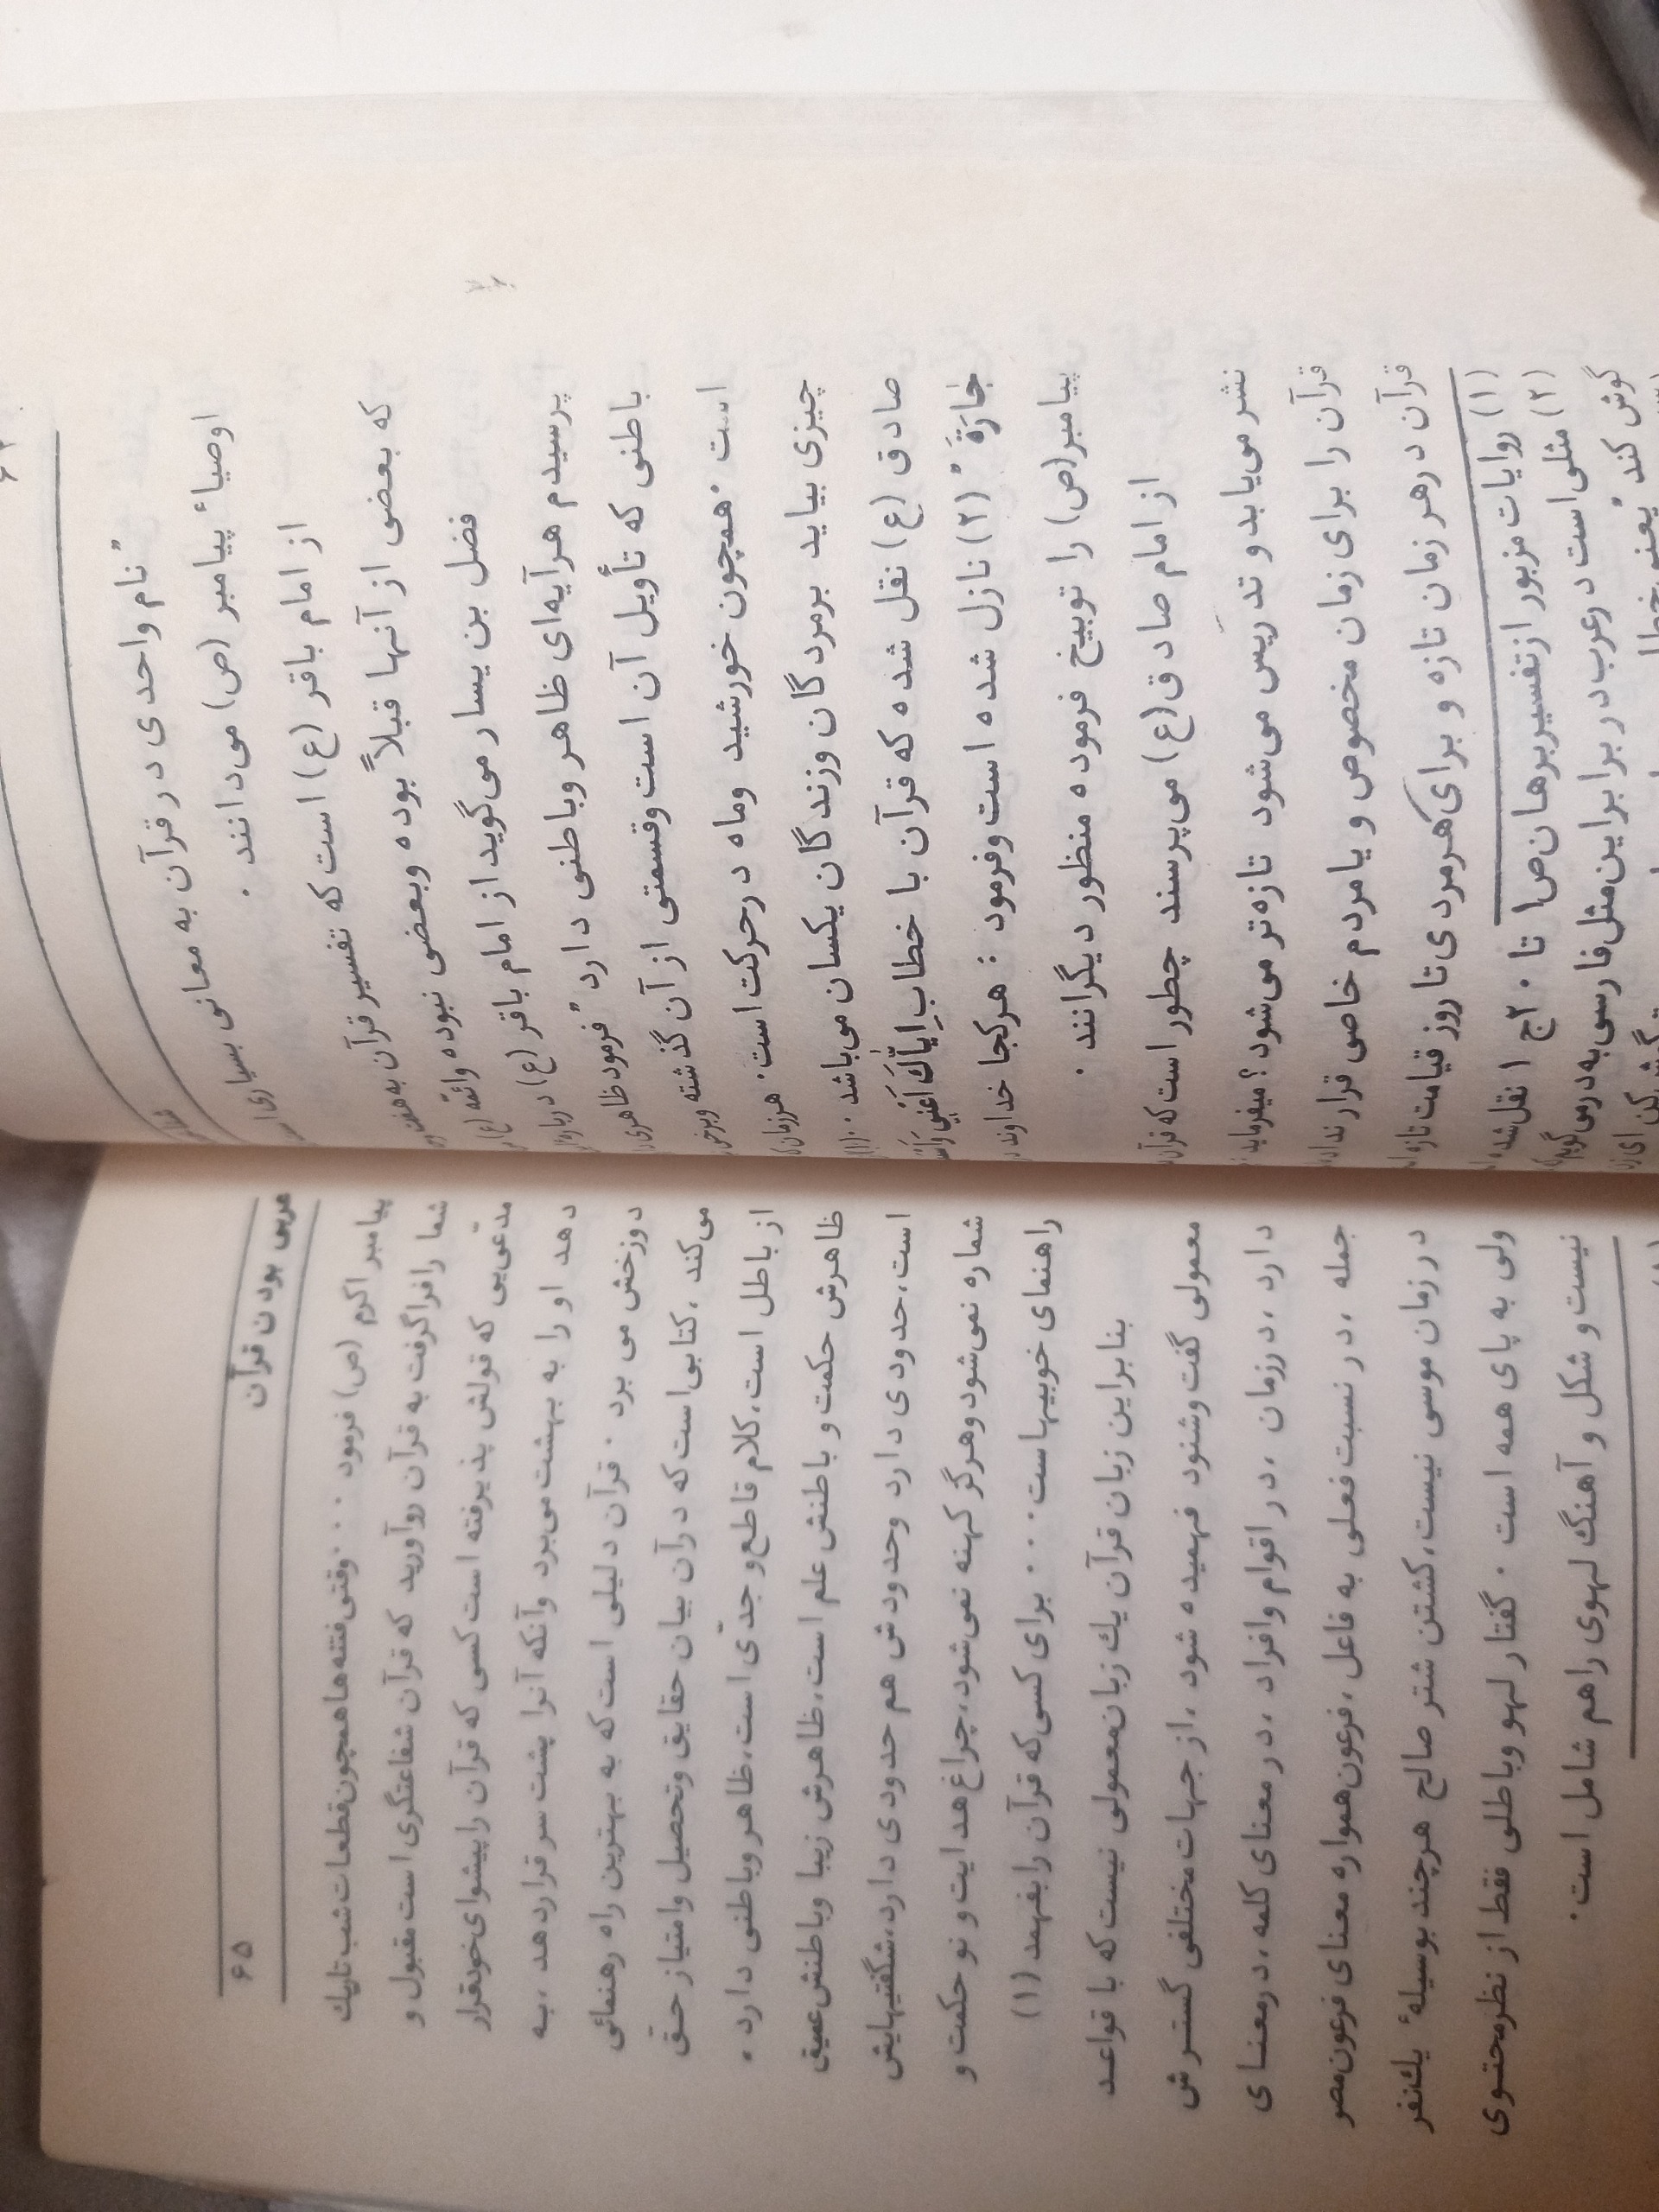 "نام واحدی در قرآن به معانی بسیاری
اوصیاء پیامبر (ص) می‌دانند .
از امام باقر (ع) است که تفسیر قرآن به
که بعضی از آنها قبلاً بوده وبعضی نبوده وائمّه (ع)
فضل بن یسار می‌گوید از امام باقر (ع)
پرسیدم هرآیه‌ای ظاهر وباطنی دارد " فرمود ظاهری
باطنی که تأویل آن است وقسمتی از آن گذشته وبرخی
است . همچون خورشید وماه درحرکت است . هرزمان
چیزی بیاید برمردگان وزندگان یکسان می‌باشد . . (۱)
صادق (ع) نقل شده که قرآن با خطابِ اِیّاكَ اَعْنی
جارَةَ " (۲) نازل شده است وفرمود : هرکجا خداوند
پیامبر(ص) را توبیخ فرموده منظور دیگرانند .
از امام صادق(ع) می‌پرسند چطور است که قرآن
نشر می‌یابد و تدریس می‌شود تازه‌تر می‌شود ؟ میفرماید :
قرآن را برای زمان مخصوص و یا مردم خاصی قرار نداده
قرآن در هر زمان تازه و برای هرمردی تا روز قیامت تازه
(۱) روایات مزبور از تفسیر برهان ص۱ تا ۲۰ ج ۱ نقل شده
(۲) مثلی است درعرب در برابر این مثل فارسی به درمی‌گویم
گوش کند "یعنی
مربی بودن قرآن
۶۵
پیامبر اکرم (ص) فرمود . . . وقتی فتنه‌ها همچون قطعات شب تاریك
شما را فرا گرفت به قرآن روآورید که قرآن شفاعتگری است مقبول و
مدّعی‌یی که قولش پذیرفته است کسی که قرآن را پیشوای خود قرار
دهد او را به بهشت می‌برد وآنکه آنرا پشت سر قرار دهد ، به
دوزخش می برد . قرآن دلیلی است که به بهترین راه رهنمائی
می‌کند ، کتابی است که در آن بیان حقایق وتحصیل وامتیاز حق
از باطل است ، کلام قاطع و جدّی است ، ظاهر وباطنی دارد .
ظاهرش حکمت و باطنش علم است ، ظاهرش زیبا وباطنش عمیق
است ، حدودی دارد وحدودش هم حدودی دارد ، شگفتیهایش
شماره نمی‌شود وهرگز کهنه نمی‌شود ، چراغ هدایت و نو حکمت و
راهنمای خوبیهاست . . . برای کسی که قرآن را بفهمد (۱)
بنابراین زبان قرآن یك زبان معمولی نیست که با قواعد
معمولی گفت وشنود فهمیده شود ، از جهات مختلفی گسترش
دارد ، درزمان ، در اقوام وافراد ، در معنای کلمه ، درمعنای
جمله ، در نسبت فعلی به فاعل ، فرعون همواره معنای فرعون مصر
در زمان موسی نیست ، کشتن شتر صالح هرچند بوسیلهٔ یك نفر
ولی به پای همه است . گفتار لهو وباطلی فقط از نظر محتوی
نیست و شکل و آهنگ لهوی را هم شامل است .